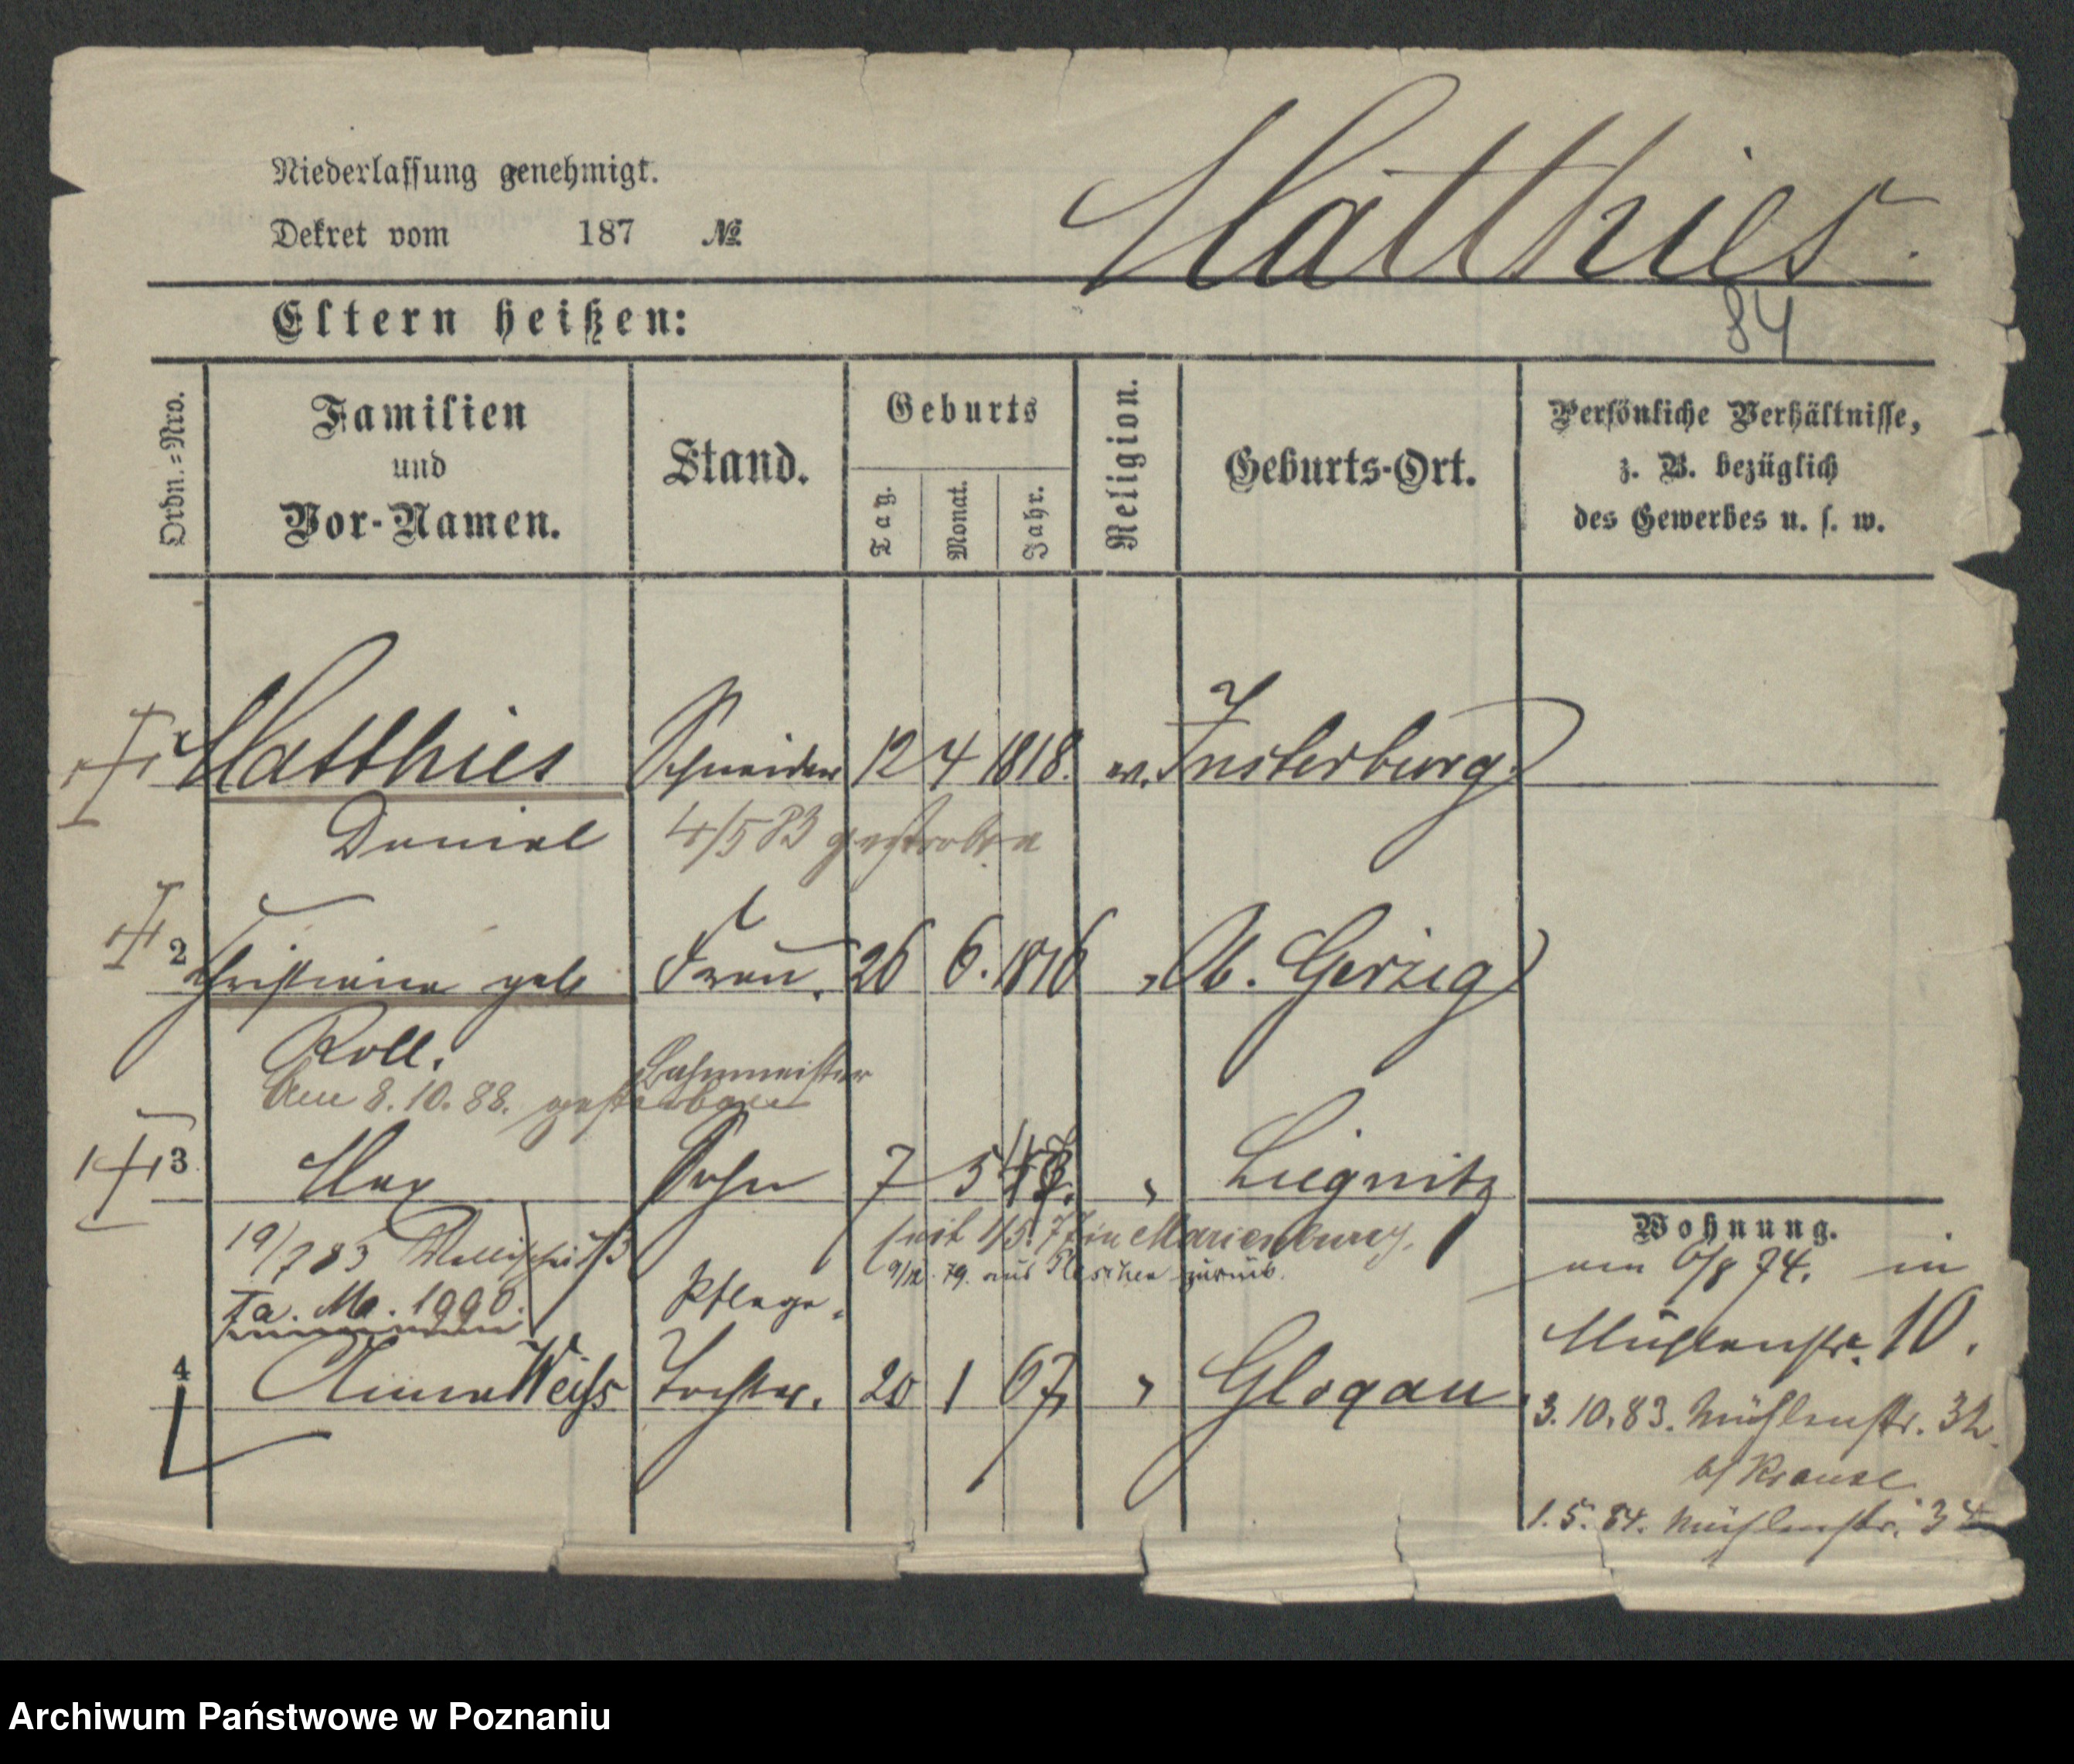 Niederlassung genehmigt.
Dekret vom 187 №
Matthies.
84
Eltern heißen:
Ordn.=Nro.
Familien
und
Vor-Namen.
Stand.
Geburts
Tag.
Monat.
Jahr.
Religion.
Geburts-Ort.
Persönliche Verhältnisse,
z. B. bezüglich
des Gewerbes u. s. w.
Matthies Schneider 12 4 1818. ev. Insterburg
Daniel 4/5 83 gestorben
2 Christiane geb Frau. 26 6. 1816 " Gerzig
Roll.
Am 8.10.88. gestorben
Bahnmeister
3 Max Sohn 7 5 " Liegnitz
19/7 83
seit 1/5. 77 in Marienburg.
9/12. 79. aus Pleschen zurück.
Wohnung.
am 6/8 74. in
Mühlenstr. 10.
Pflege-
4 Anna Weiss Tochter. 20 1 67 " Glogau
3.10.83. Mühlenstr. 32.
b/ Krause
1.5.84. Mühlenstr. 34
Archiwum Państwowe w Poznaniu